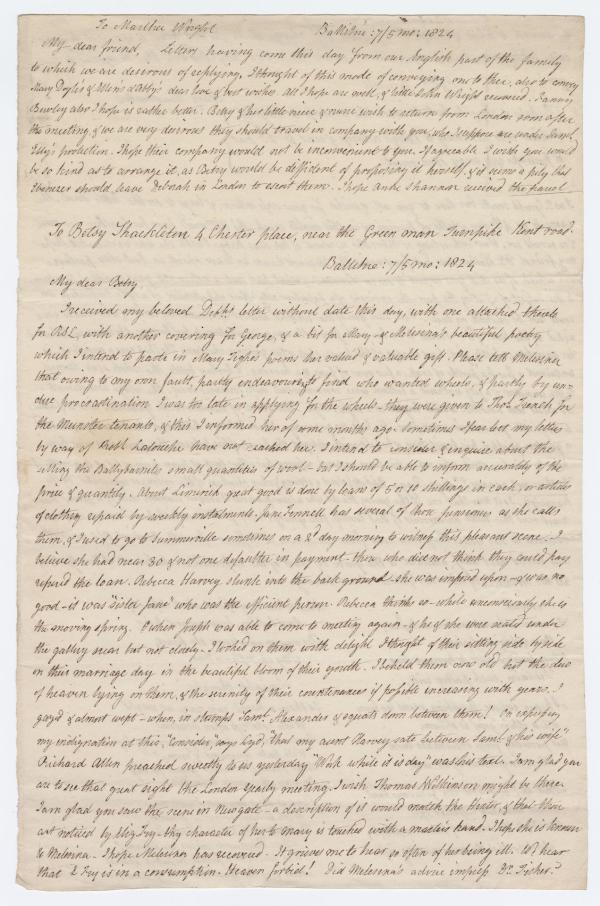 To Martha Wright Ballitore: 7/5 mo: 1824
My dear friend, Letters having come this day from our English part of the family
to which we are desirous of replying, I thought of this mode of conveying one to thee, also to convey
Mary Doyle's & Allens & Abby's dear love & best wishes. All I hope are well, & little John Wright recovered. Fanny
Bewley also I hope is rather better. Betsy & her little niece & nurse wish to return from London soon after
the meeting, & we are very desirous they should travel in company with you, who I suppose are under Saml
Elly's protection. I hope their company would not be inconvenient to you. If agreeable I wish you would
be so kind as to arrange it, as Betsy would be diffident of proposing it herself, & it seems a pity that
Ebenezer should leave Deborah in London to escort them. I hope Anne Shannon received the parcel
To Betsy Shackleton 4 Chester place, near the Green man Turnpike Kent road.
Ballitore: 7/5 mo: 1824
My dear Betsy,
I received my beloved letter without date this day, with one attached thereto
for RSL, with another covering for George, & a bit for Mary & Melesina's beautiful poetry
which I intend to paste in Mary Tighe's poems her valued & valuable gift. Please tell Melesina
that owing to my own fault, partly endeavouring to find who wanted wheels, & partly by un-
due procrastination I was too late in applying for the wheels – they were given to Thos French for
the Munster tenants, & this I informed her of some months ago. Sometimes I fear lest my letters
by way of Robt Latouche have not reached her. I intend to consider & enquire about the
selling the Ballybarnies small quantities of wool – but I should be able to inform accurately of the
price & quantity. About Limerick great good is done by loans of 5 or 10 shillings in cash, or articles
of clothing repaid by weekly instalments. Jane Fennell has several of those pensioners as she calls
them, & I used to go to Summerville sometimes on a 2d day morning to witness this pleasant scene. I
believe she had near 30 & not one defaulter in payment – those who did not think they could pay
refused the loan. Rebecca Harvey slunk into the back ground – she was imposed upon – & was no
good – it was "sister Jane" who was the efficient person. Rebecca thinks so – while unconsciously she is
the moving spring. O when Joseph was able to come to meeting again – & he & she were seated under
the gallery near but not closely. I looked on them with delight I thought of their sitting side by side
on their marriage day in the beautiful bloom of their youth. I beheld them now old but the dew
of heaven lying on them, & the serenity of their countenances if possible increasing with years. I
gazed & almost wept – when, in stomps Saml Alexander & squats down between them! On expressing
my indignation at this, "Consider," says Lyd, "that my aunt Harvey sate between Saml & his wife"
Richard Allen preached sweetly to us yesterday "Work while it is day" was his text. I am glad you
are to see that great sight the London Yearly meeting. I wish Thomas Wilkinson might be there.
I am glad you saw the scene in Newgate – a description of it would match the Hector, & that thou
art noticed by Eliz Fry – thy character of her to Mary is touched with a master's hand. I hope she is known
to Melesina – I hope Melesina has recovered. It grieves me to hear so often of her being ill. We hear
that E Fry is in a consumption. Heaven forbid! Did Melesina's advice impress Dr Fisher?